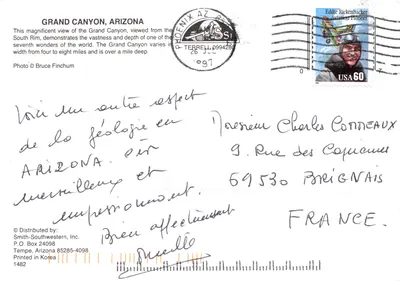 GRAND CANYON, ARIZONA
This magnificent view of the Grand Canyon, viewed from the
South Rim, demonstrates the vastness and depth of one of the
seventh wonders of the world. The Grand Canyon varies in
width from four to eight miles and is over a mile deep
Photo © Bruce Finchum
PHOENIX AZ
TERRELL
1997
Eddie Rickenbacker
Aviation Pioneer
USA 60
Voici un autre aspect
de la géologie en
ARIZONA.
merveilleux et
impressionnant.
Bien affectueusement
Monsieur Charles
9. Rue des
69530 BRIGNAIS
FRANCE.
© Distributed by:
Smith-Southwestern, Inc.
P.O. Box 24098
Tempe, Arizona 85285-4098
Printed in Korea
1462